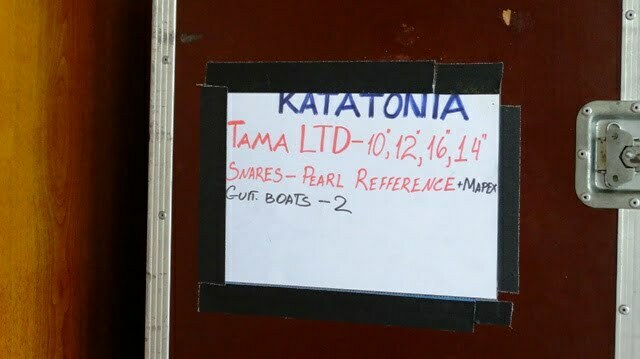 KATATONIA
TAMA LTD-10",12",16",14"
SNARES-PEARL REFFERENCE+MAPEX
GUIT. BOATS-2